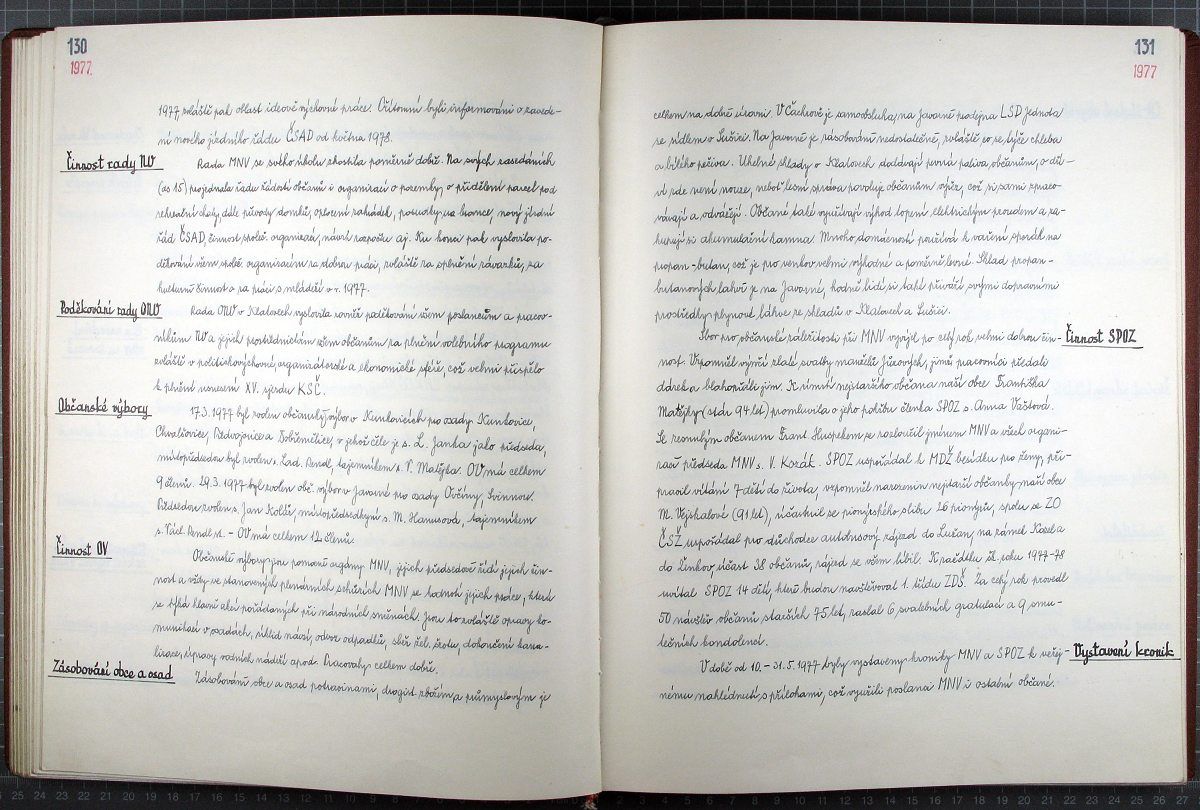 130
1977.
1977, zvláště pak oblast ideově výchovné práce. Přítomní byli informováni o zavede-
ní nového jízdního řádu ČSAD od května 1978.
Činnost rady NV
Rada MNV se svého úkolu zhostila poměrně dobře. Na svých zasedáních
(as 15) projednala řadu žádostí občanů i organizací o pozemky, o přidělení parcel pod
rekreační chaty, dále převody domků, oplocení zahrádek, posudky na brance, nový jízdní
řád ČSAD, činnost společ. organizací, návrh rozpočtu aj. Ku konci pak vyslovila po-
děkování všem společ. organizacím za dobrou práci, zvláště za splnění závazků, za
kulturní činnost a za práci s mládeží v r. 1977.
Poděkování rady ONV
Rada ONV v Klatovech vyslovila rovněž poděkování všem poslancům a pracov-
níkům NV a jejich prostřednictvím všem občanům za plnění volebního programu
zvláště v politickovýchovné, organizátorské a ekonomické sféře, což velmi přispělo
k plnění usnesení XV. sjezdu KSČ.
Občanské výbory
17.3.1977 byl zvolen občanský výbor v Kunkovicích pro osady Kunkovice,
Chvalšovice, Předvojovice a Dobřemilice, v jehož čele je s. L. Janka jako předseda,
místopředsedou byl zvolen s. Lad. Rendl, tajemníkem s. V. Matějka. OV má celkem
9 členů. 29.3.1977 byl zvolen obč. výbor v Javorné pro osady Ovčiny, Svinnou.
Předsedou zvolen s. Jan Kolář, místopředsedkyní s. M. Hanusová, tajemníkem
s. Václ. Rendl st. – OV má celkem 12 členů.
Činnost OV
Občanské výbory jsou pomocné orgány MNV, jejich předsedové řídí jejich čin-
nost a vždy ve stanovených plenárních schůzích MNV se hodnotí jejich práce, která
se týká hlavně akcí pořádaných při národních směnách. Jsou to zvláště opravy ko-
munikací v osadách, úklid návsí, odvoz odpadků, sběr žel. šrotu, dokončení kana-
lizace, úpravy vodních nádrží apod. Pracovaly celkem dobře.
Zásobování obce a osad
Zásobování obce a osad potravinami, drogist. zbožím a průmyslovým je
131
1977
celkem na dobré úrovni. V Čachrově je samoobsluha, na Javorné prodejna LSD Jednota
se sídlem v Sušici. Na Javorné je zásobování nedostatečné, zvláště co se týče chleba
a bílého pečiva. Uhelné sklady v Klatovech dodávají pevná paliva občanům, o dří-
ví zde není nouze, neboť lesní správa povoluje občanům výřez, což si sami zpraco-
vávají a odvážejí. Občané také využívají výhod topení elektrickým proudem a za-
kupují si akumulační kamna. Mnoho domácností používá k vaření sporák na
propan-butan, což je pro venkov velmi výhodné a poměrně levné. Sklad propan-
butanových lahví je na Javorné, hodně lidí si také přiváží svými dopravními
prostředky plynové láhve ze skladů v Klatovech a Sušici.
Činnost SPOZ
Sbor pro občanské záležitosti při MNV vyvíjel po celý rok velmi dobrou čin-
nost. Vzpomněl výročí zlaté svatby manželů Jůzových, jimž pracovníci předali
dárek a blahopřáli jim. K úmrtí nejstaršího občana naší obce Františka
Matějky (stár 94 let) promluvila o jeho pohřbu členka SPOZ s. Anna Vaštová.
Se zesnulým občanem Frant. Huspekem se rozloučil jménem MNV a všech organi-
zací předseda MNV s. V. Kozák. SPOZ uspořádal k MDŽ besídku pro ženy, při-
pravil vítání 7 dětí do života, vzpomněl narozenin nejstarší občanky naší obce
M. Vejskalové (91 let), zúčastnil se pionýrského slibu 26 pionýrů, spolu se ZO
ČSŽ uspořádal pro důchodce autobusový zájezd do Lučan, na zámek Kozel a
do Linkov, účast 38 občanů, zájezd se všem líbil. K začátku šk. roku 1977-78
uvítal SPOZ 14 dětí, které budou navštěvovat 1. třídu ZDŠ. Za celý rok provedl
50 návštěv občanů starších 75 let, zaslal 6 svatebních gratulací a 9 smu-
tečních kondolencí.
Vystavení kronik
V době od 10. – 31.5.1977 byly vystaveny kroniky MNV a SPOZ k veřej-
nému nahlédnutí s přílohami, což využili poslanci MNV i ostatní občané.